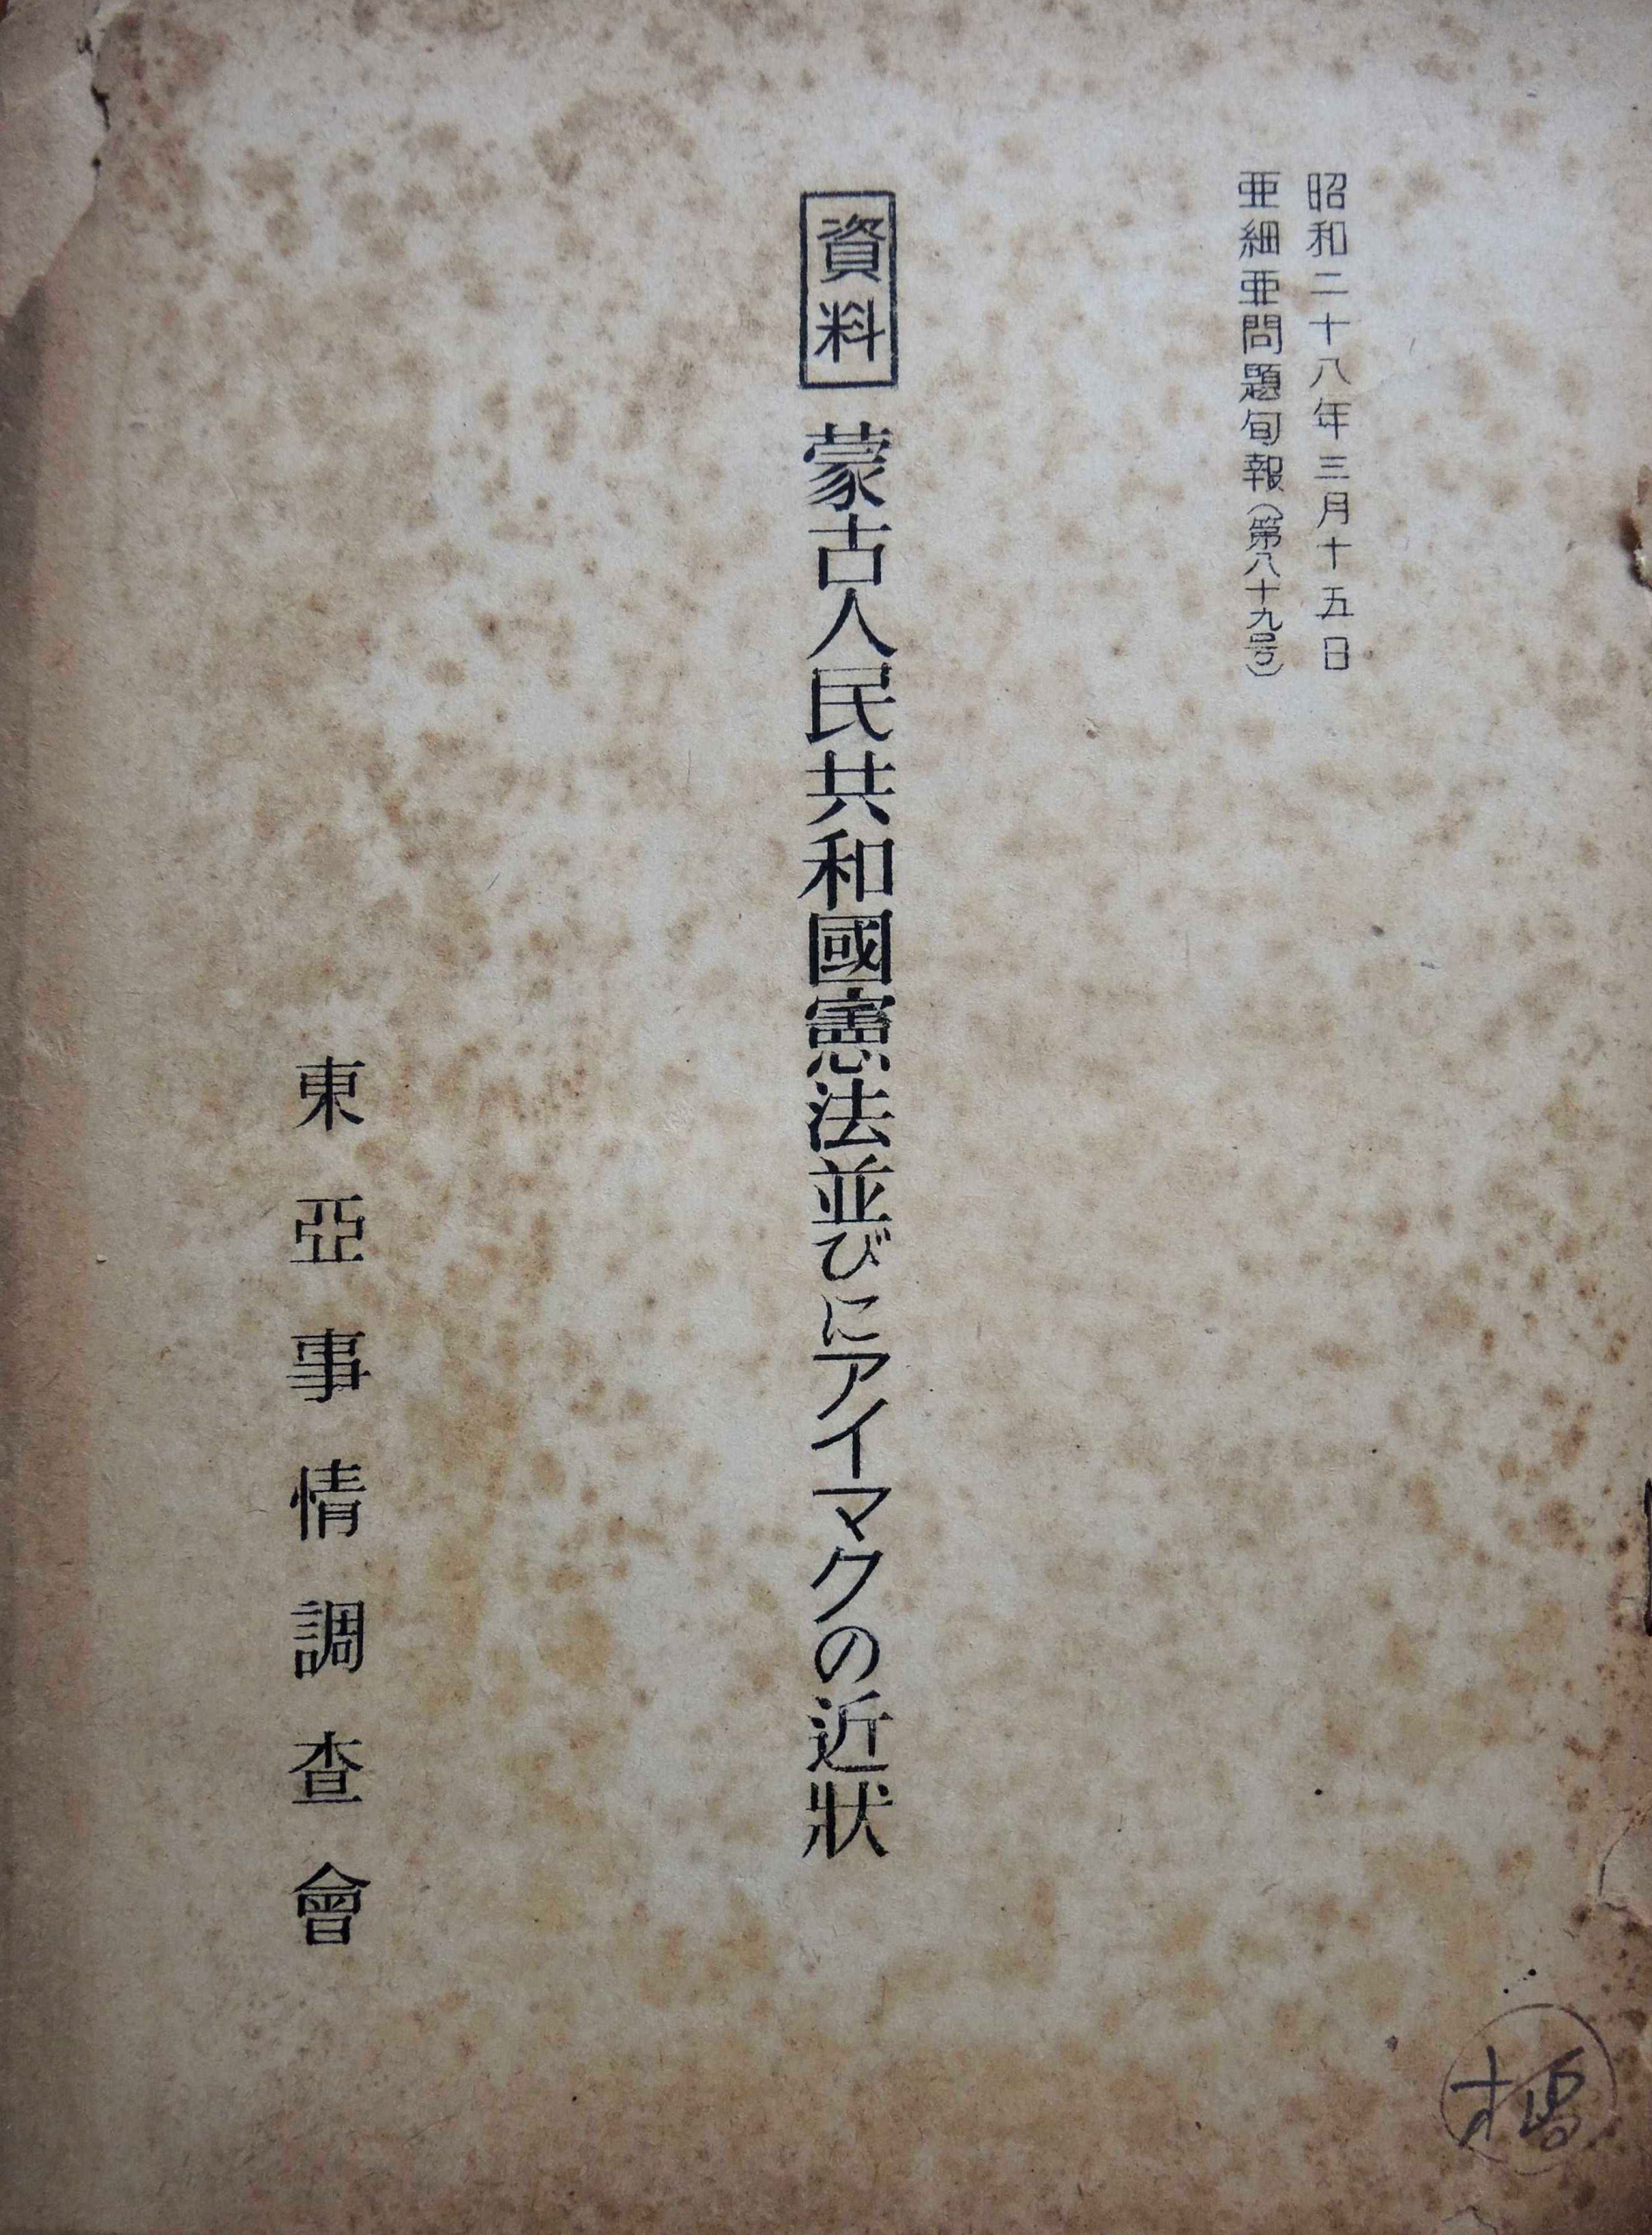 昭和二十八年三月十五日
亜細亜問題旬報(第八十九号)
資料 蒙古人民共和國憲法並びにアイマクの近狀
東亞事情調查會